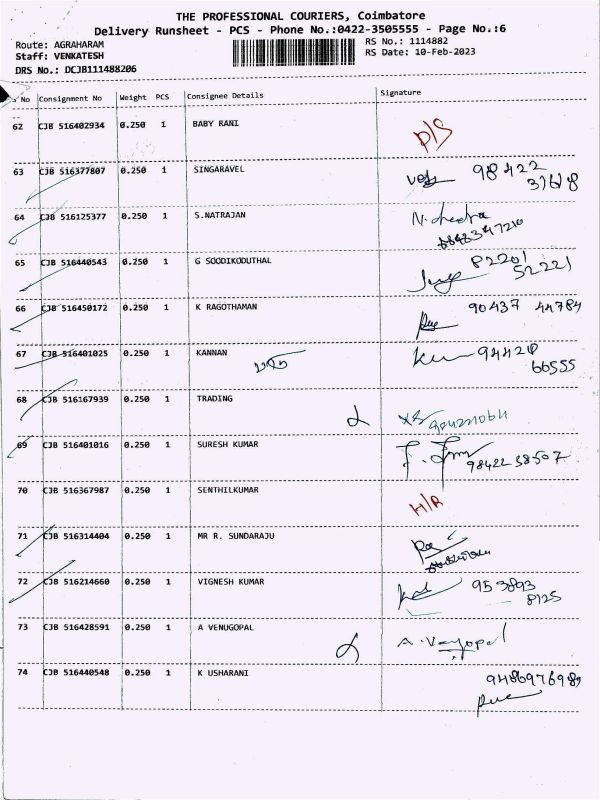 THE PROFESSIONAL COURIERS, Coimbatore
Delivery Runsheet - PCS - Phone No.:0422-3505555 - Page No.:6
Route: AGRAHARAM
RS No.: 1114882
Staff: VENKATESH
RS Date: 10-Feb-2023
DRS No.: DCJB111488206
No Consignment No Weight PCS Consignee Details Signature
62 CJB 516402934 0.250 1 BABY RANI D/S
63 CJB 516377807 0.250 1 SINGARAVEL 98422
64 CJB 516125377 0.250 1 S.NATRAJAN
65 CJB 516440543 0.250 1 G SOODIKODUTHAL 82201
52221
66 CJB 516450172 0.250 1 K RAGOTHAMAN 90437 44784
67 CJB 516401025 0.250 1 KANNAN 94420
66555
68 CJB 516167939 0.250 1 TRADING
69 CJB 516401016 0.250 1 SURESH KUMAR
9842238507
70 CJB 516367987 0.250 1 SENTHILKUMAR H/R
71 CJB 516314404 0.250 1 MR R. SUNDARAJU
72 CJB 516214660 0.250 1 VIGNESH KUMAR 953893
8125
73 CJB 516428591 0.250 1 A VENUGOPAL A. Venugopal
74 CJB 516440548 0.250 1 K USHARANI 9486976989